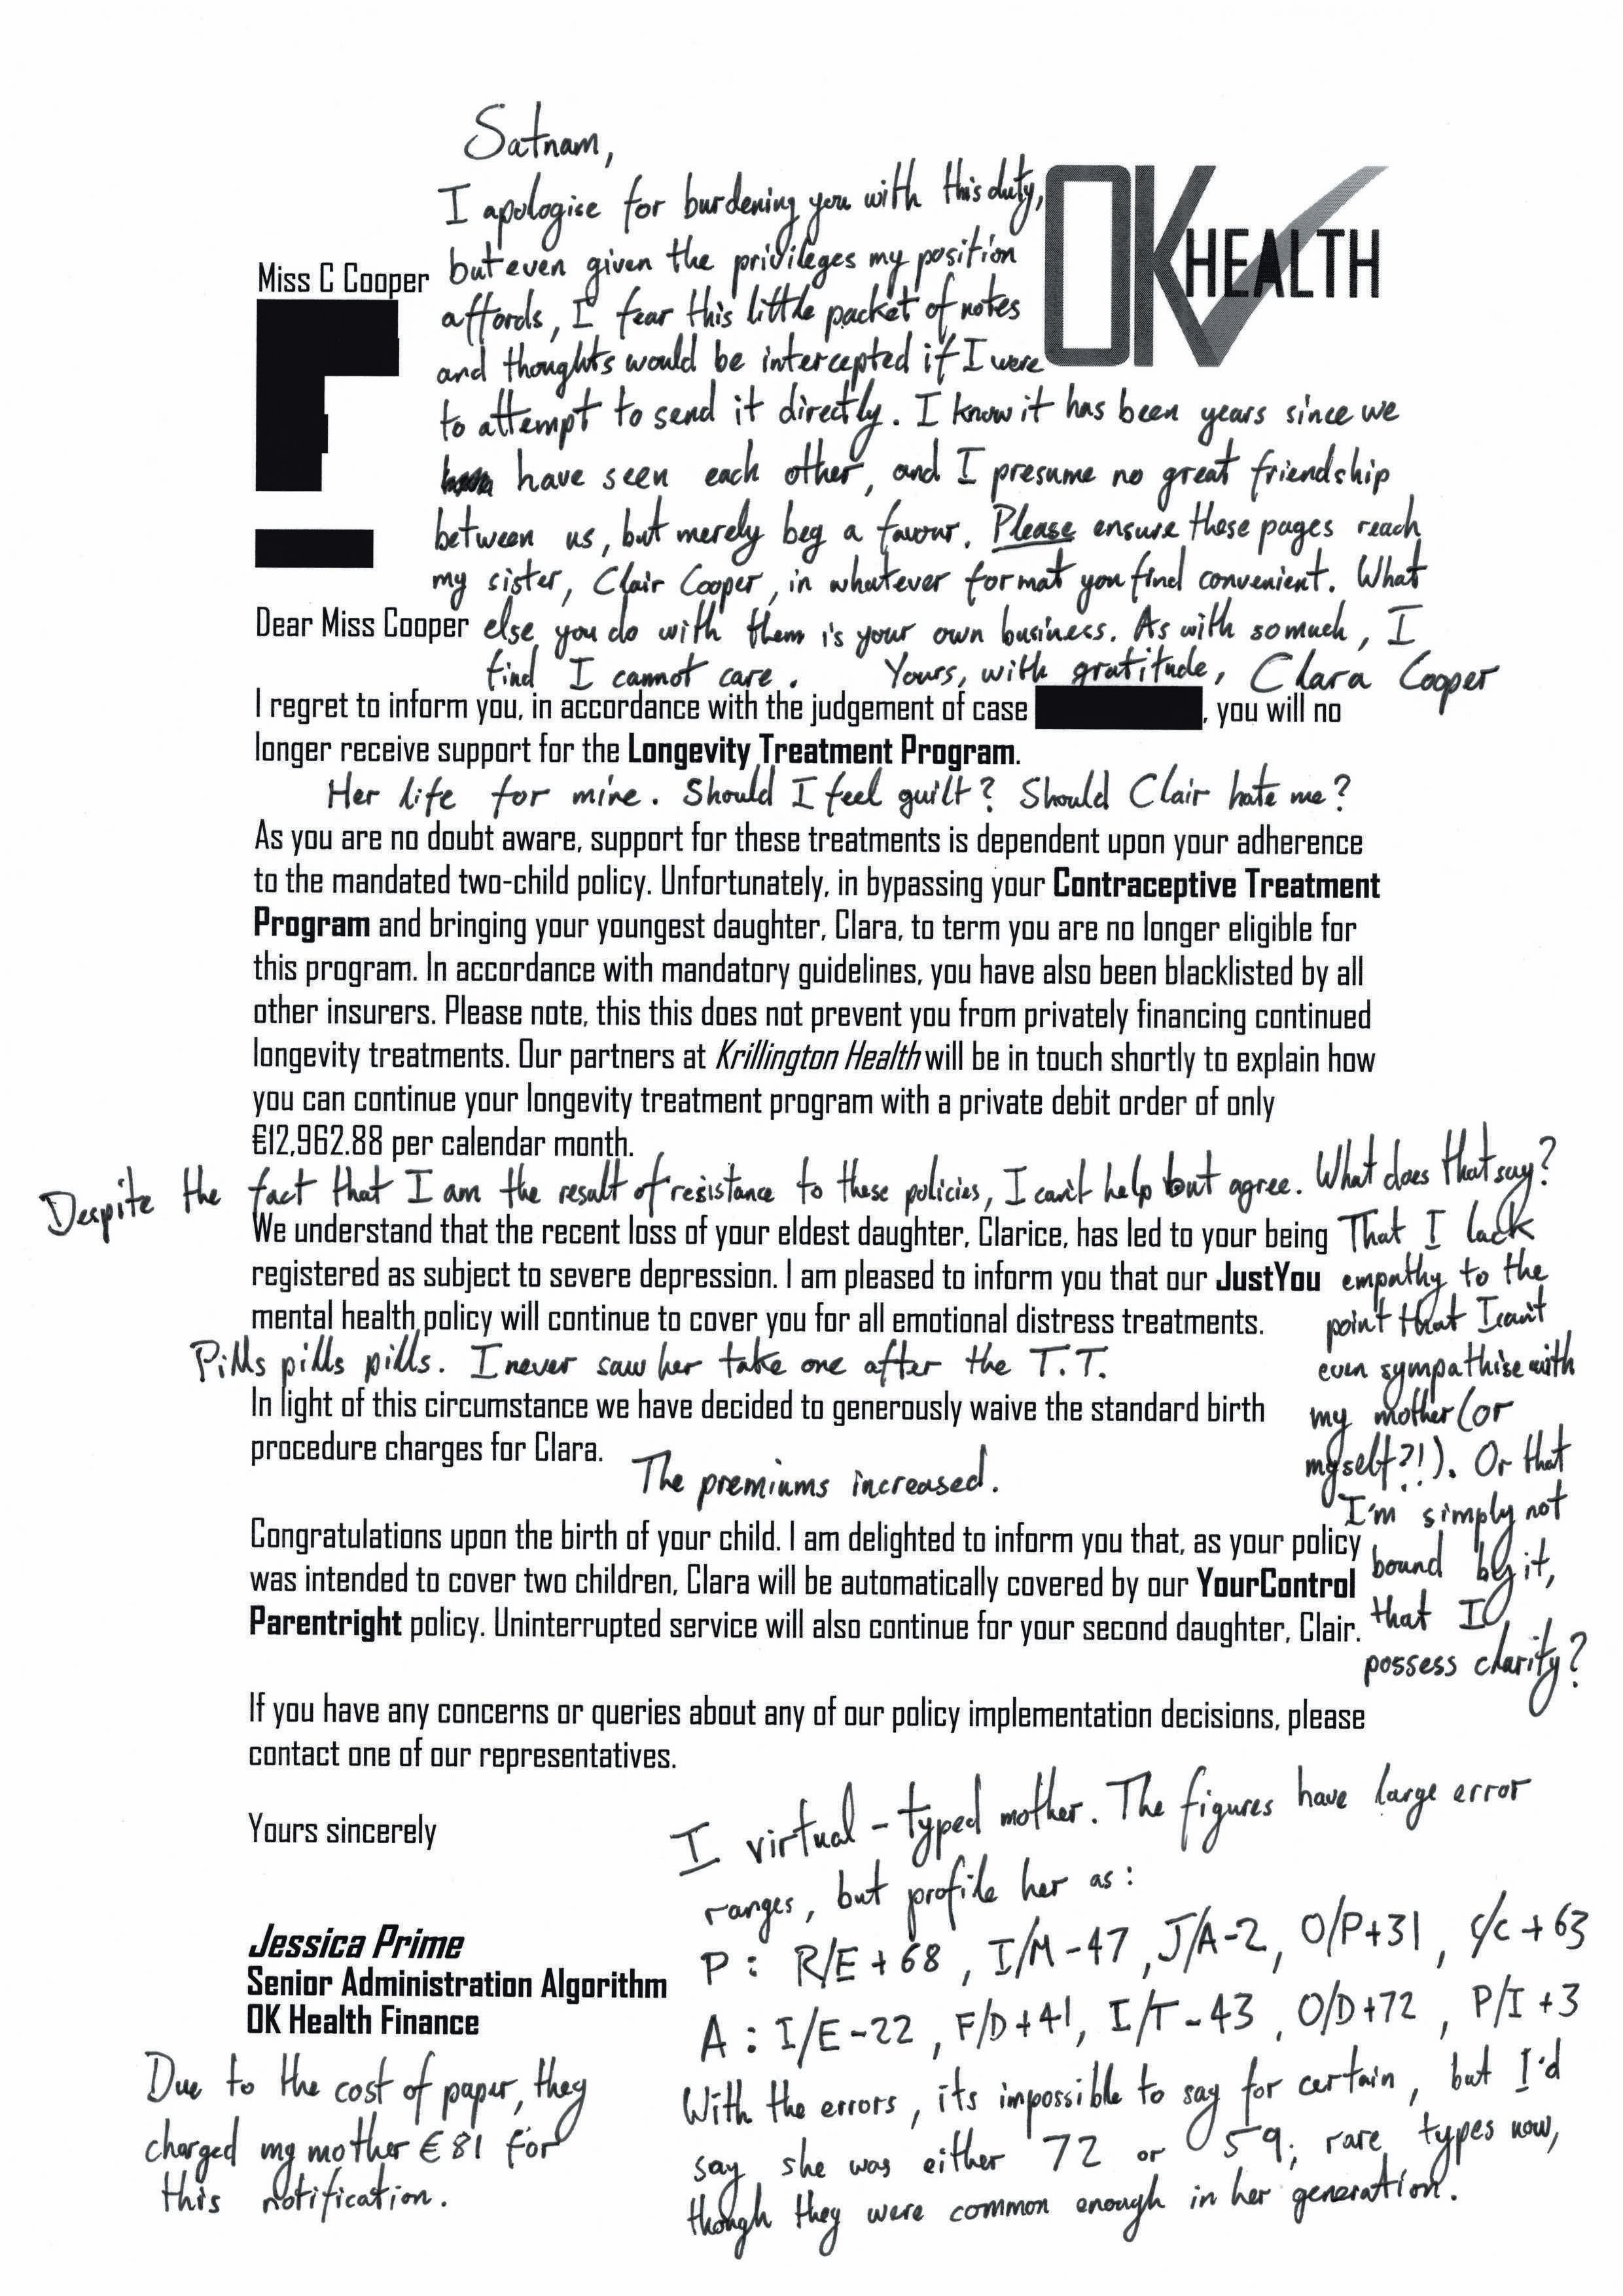 Satnam,
I apologise for burdening you with this duty,
but even given the privileges my position
affords, I fear this little packet of notes
and thoughts would be intercepted if I were
to attempt to send it directly. I know it has been years since we
have seen each other, and I presume no great friendship
between us, but merely beg a favour. Please ensure these pages reach
my sister, Clair Cooper, in whatever format you find convenient. What
else you do with them is your own business. As with so much, I
find I cannot care. Yours, with gratitude, Clara Cooper
OK HEALTH
Miss C Cooper
Dear Miss Cooper
I regret to inform you, in accordance with the judgement of case , you will no
longer receive support for the Longevity Treatment Program.
Her life for mine. Should I feel guilt? Should Clair hate me?
As you are no doubt aware, support for these treatments is dependent upon your adherence
to the mandated two-child policy. Unfortunately, in bypassing your Contraceptive Treatment
Program and bringing your youngest daughter, Clara, to term you are no longer eligible for
this program. In accordance with mandatory guidelines, you have also been blacklisted by all
other insurers. Please note, this this does not prevent you from privately financing continued
longevity treatments. Our partners at Krillington Health will be in touch shortly to explain how
you can continue your longevity treatment program with a private debit order of only
€12,962.88 per calendar month.
Despite the fact that I am the result of resistance to these policies, I can't help but agree. What does that say?
That I lack
empathy to the
point that I can't
even sympathise with
my mother (or
myself?!). Or that
I'm simply not
bound by it,
that I
possess clarity?
We understand that the recent loss of your eldest daughter, Clarice, has led to your being
registered as subject to severe depression. I am pleased to inform you that our JustYou
mental health policy will continue to cover you for all emotional distress treatments.
Pills pills pills. I never saw her take one after the T.T.
In light of this circumstance we have decided to generously waive the standard birth
procedure charges for Clara.
The premiums increased.
Congratulations upon the birth of your child. I am delighted to inform you that, as your policy
was intended to cover two children, Clara will be automatically covered by our YourControl
Parentright policy. Uninterrupted service will also continue for your second daughter, Clair.
If you have any concerns or queries about any of our policy implementation decisions, please
contact one of our representatives.
Yours sincerely
Jessica Prime
Senior Administration Algorithm
OK Health Finance
Due to the cost of paper, they
charged my mother €81 for
this notification.
I virtual-typed mother. The figures have large error
ranges, but profile her as:
P: R/E+68, I/M-47, J/A-2, O/P+31, C/C+63
A: I/E-22, F/D+41, I/T-43, O/D+72, P/I+3
With the errors, its impossible to say for certain, but I'd
say she was either 72 or 59; rare types now,
though they were common enough in her generation.